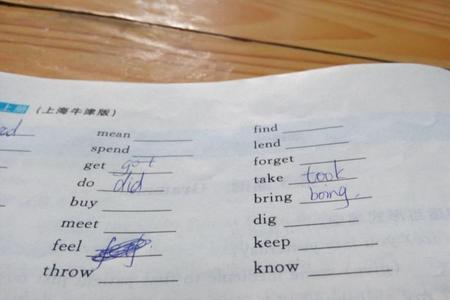 上册 (上海牛津版)
mean
spend
get got
do did
buy
meet
feel
throw
find
lend
forget
take took
bring bring
dig
keep
know